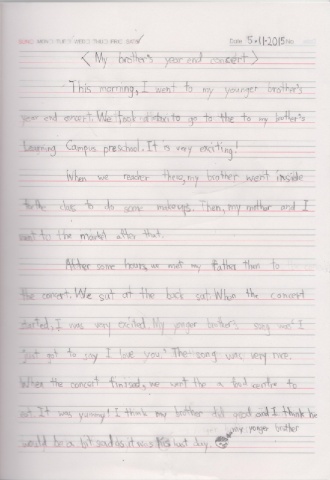 Date 5.11.2015
< My brother's year end concert >
This morning, I went to my younger brother's
year end concert. We took to go to the to my brother's
Learning Campus preschool. It is very exciting!
When we reader there, my brother went inside
to the class to do some makeups. Then, my mother and I
went to the market after that.
After some hours, we met my father then to
the concert. We sat at the back sat. When the concert
started, I was very excited. My yonger brother's song was I
just got to say I love you! The song was very nice.
When the concert finised, we went the a food centre to
eat. It was yummy! I think my brother did good and I think he
my yonger brother
would be a bit sad as it was his last day.